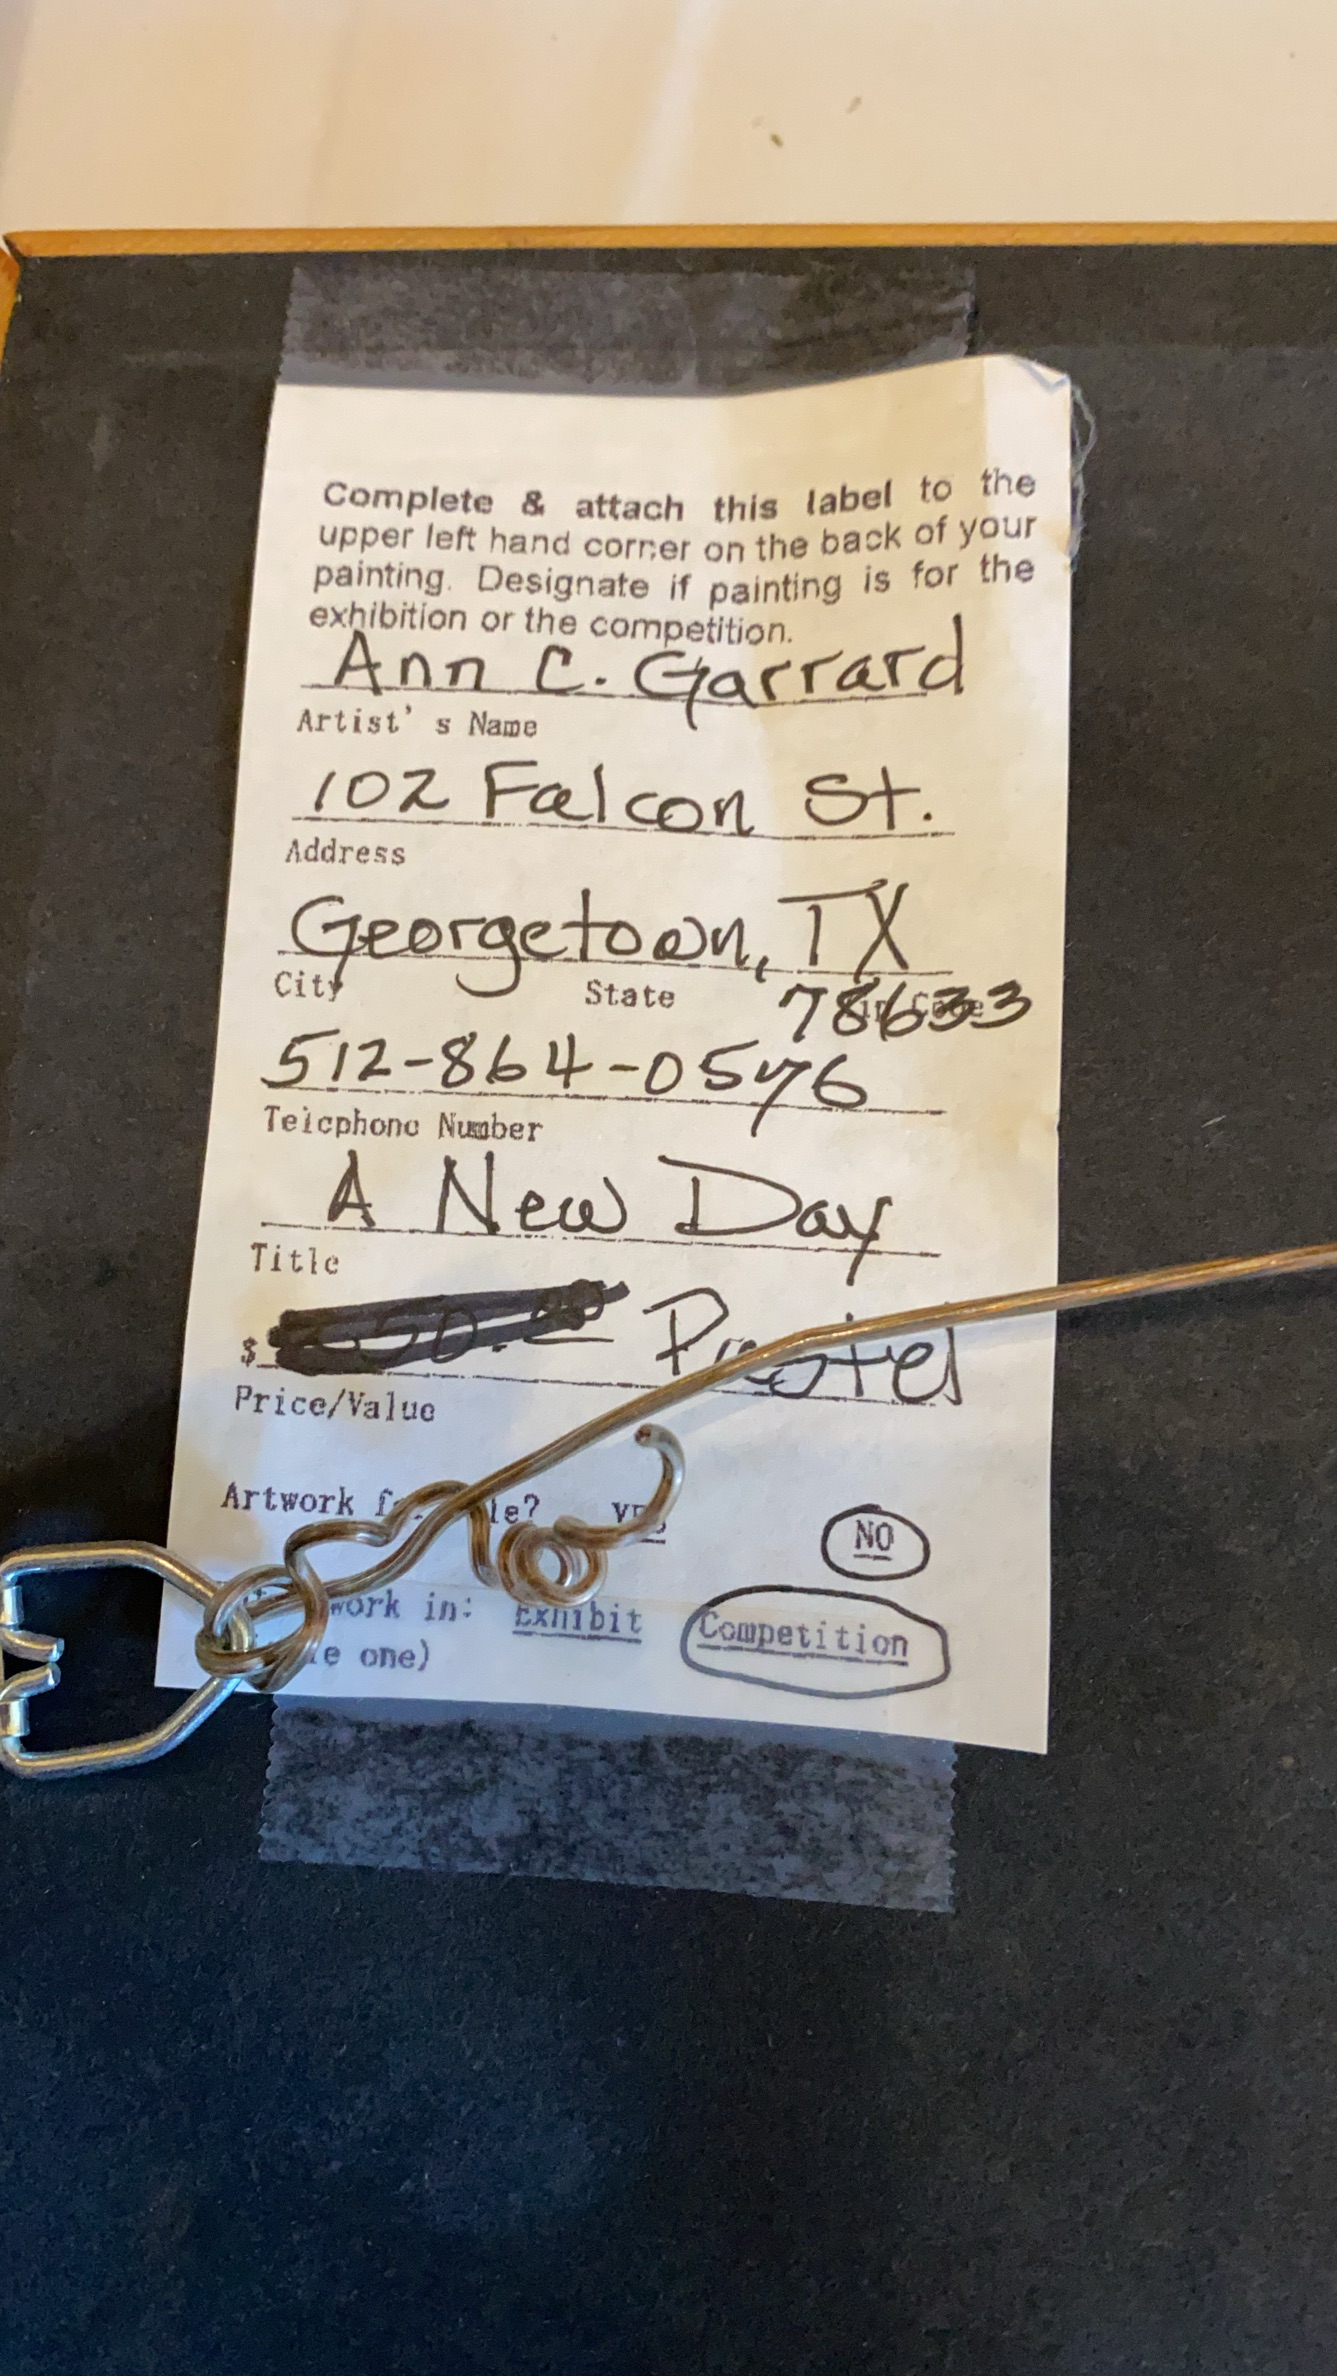 Complete & attach this label to the
upper left hand corner on the back of your
painting. Designate if painting is for the
exhibition or the competition.
Ann C. Garrard
Artist's Name
102 Falcon St.
Address
Georgetown, TX
City State
78633
512-864-0576
Telephone Number
A New Day
Title
$ Pastel
Price/Value
Artwork YES NO
work in: Exhibit Competition
one)